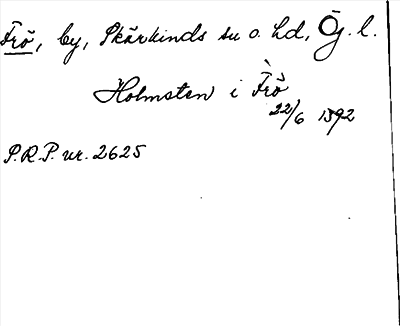 Frö, by, Skärkinds sn o. hd, Ög. l.
Holmsten i Frö
22/6 1592
P.R.P. nr. 2625